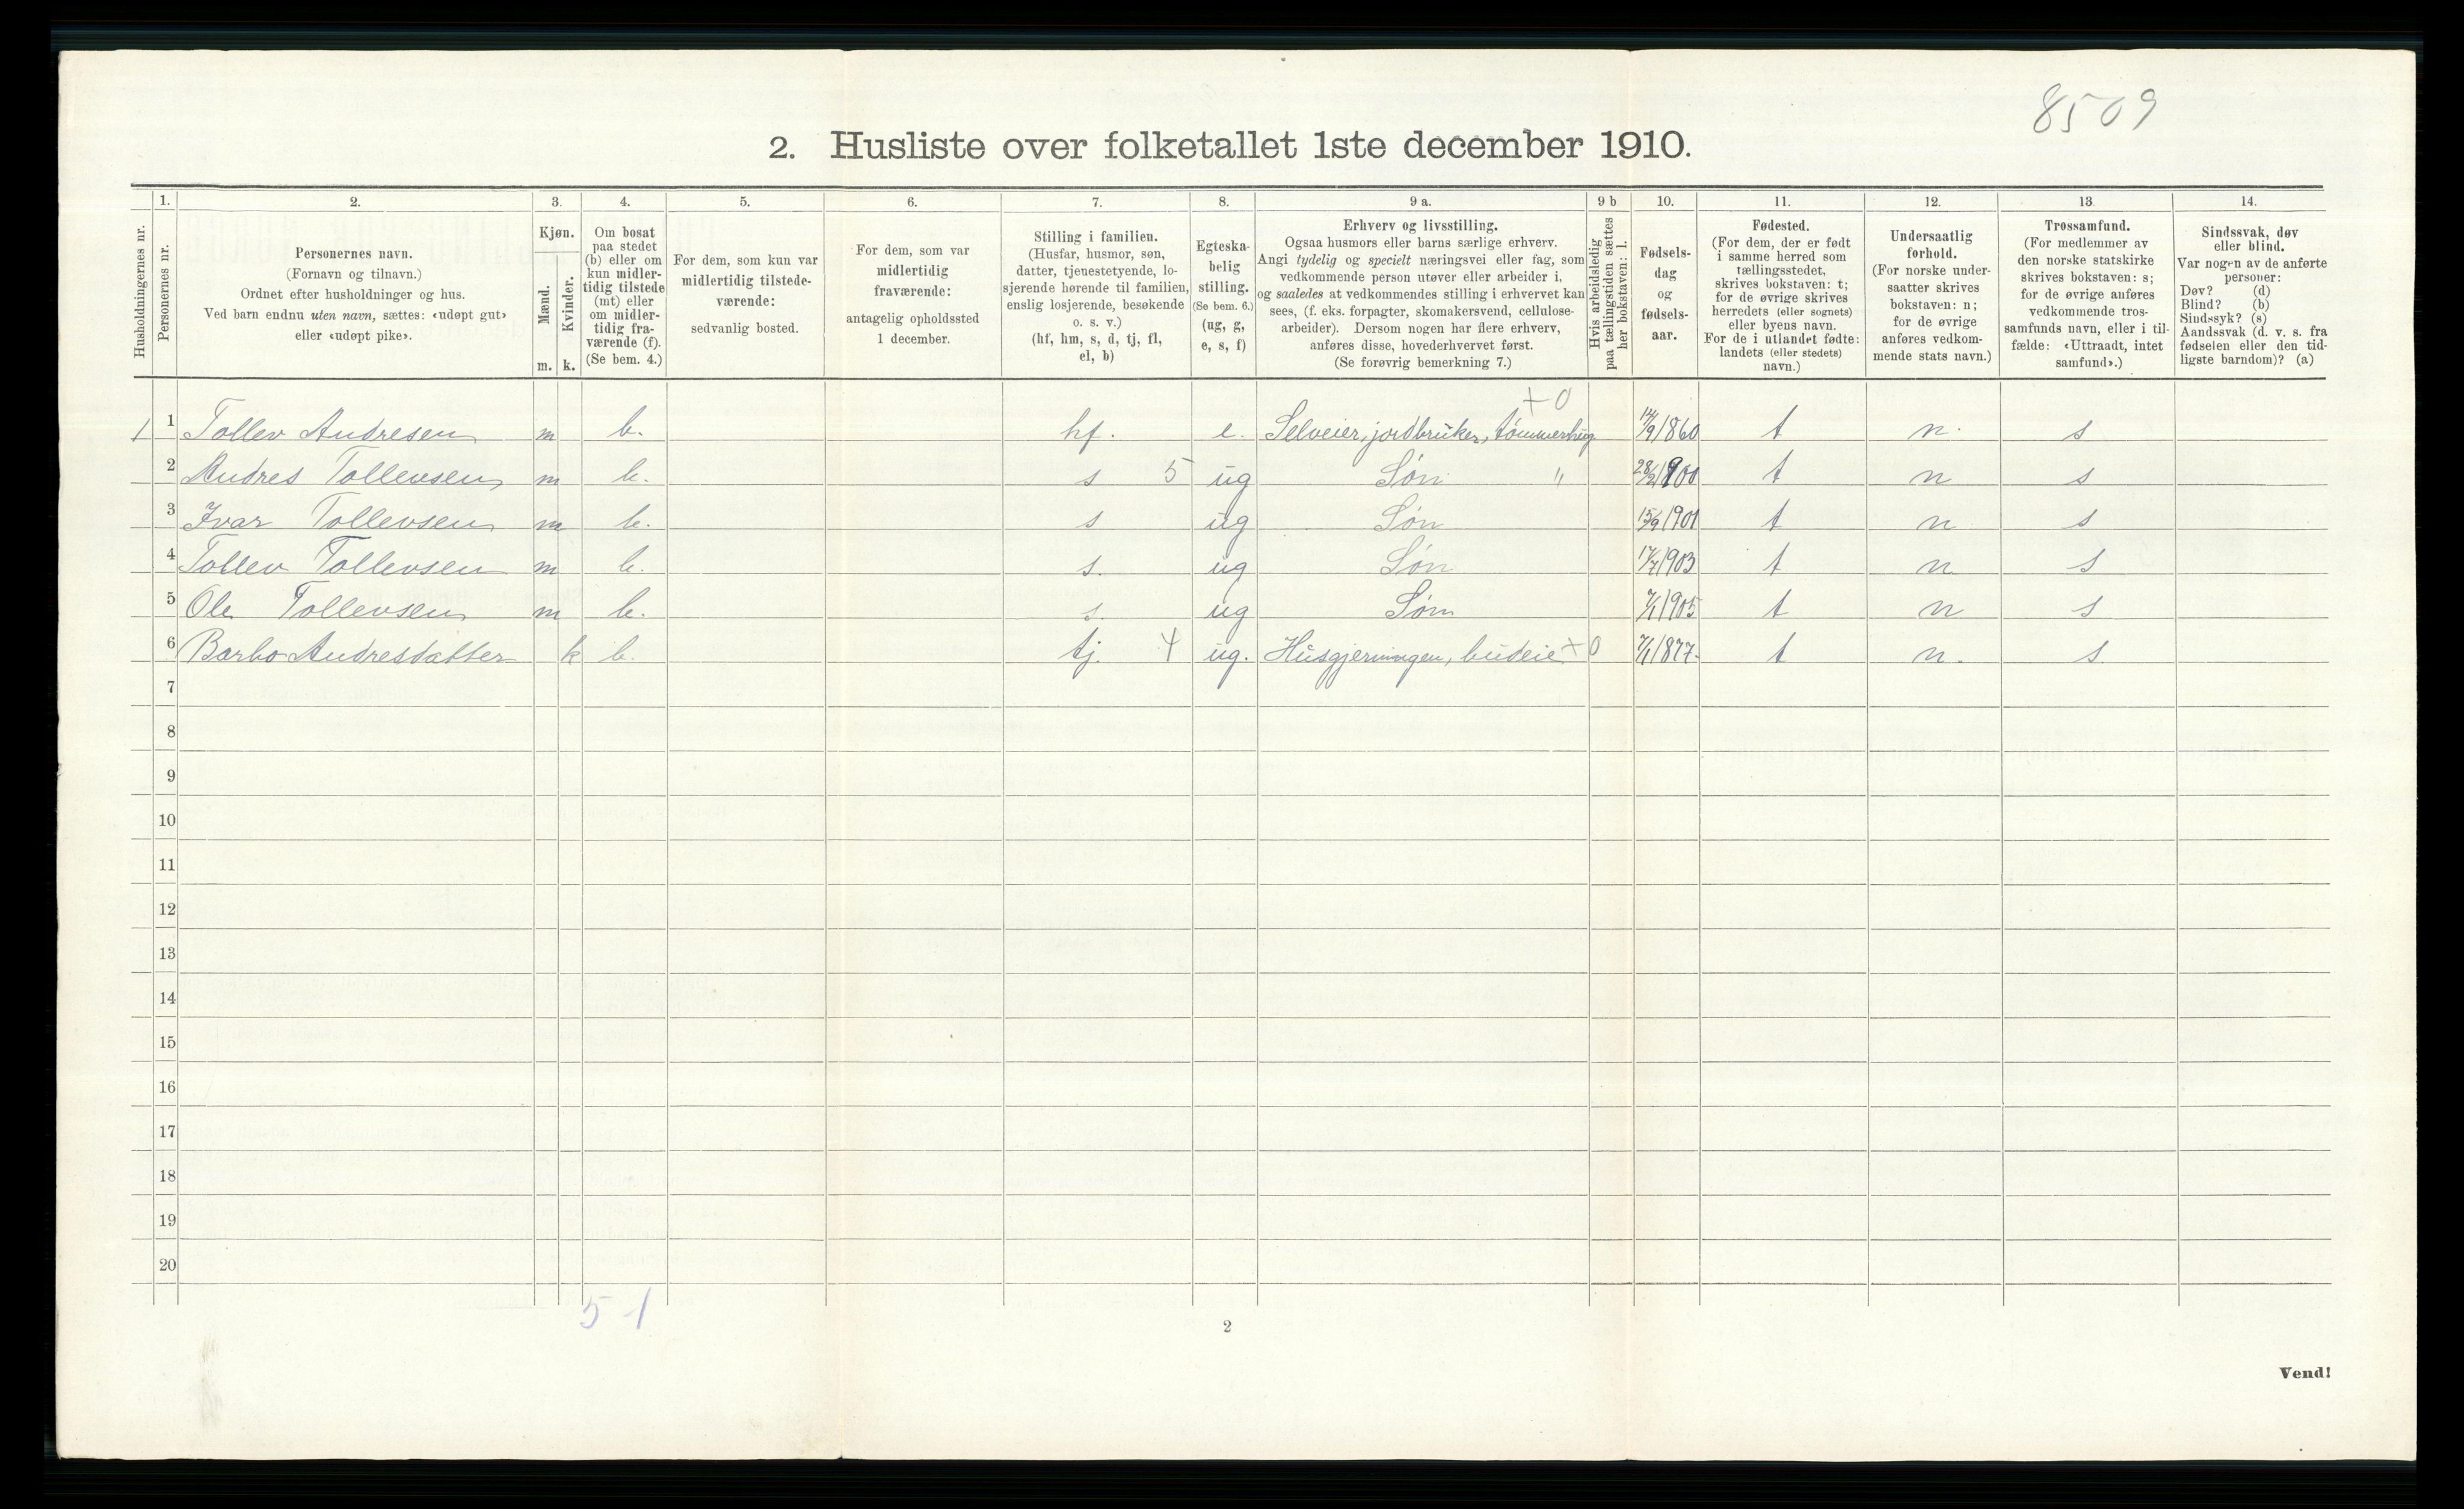 8509
2. Husliste over folketallet 1ste december 1910.
Husholdningernes nr.
1.
Personernes nr.
2.
Personernes navn.
(Fornavn og tilnavn.)
Ordnet efter husholdninger og hus.
Ved barn endnu uten navn, sættes: «udøpt gut»
eller «udøpt pike».
3.
Kjøn.
Mænd.
Kvinder.
m. k.
4.
Om bosat
paa stedet
(b) eller om
kun midler-
tidig tilstede
(mt) eller
om midler-
tidig fra-
værende (f).
(Se bem. 4.)
5.
For dem, som kun var
midlertidig tilstede-
værende:
sedvanlig bosted.
6.
For dem, som var
midlertidig
fraværende:
antagelig opholdssted
1 december.
7.
Stilling i familien.
(Husfar, husmor, søn,
datter, tjenestetyende, lo-
sjerende hørende til familien,
enslig losjerende, besøkende
o. s. v.)
(hf, hm, s, d, tj, fl,
el, b)
8.
Egteska-
belig
stilling.
(Se bem. 6.)
(ug, g,
e, s, f)
9 a.
Erhverv og livsstilling.
Ogsaa husmors eller barns særlige erhverv.
Angi tydelig og specielt næringsvei eller fag, som
vedkommende person utøver eller arbeider i,
og saaledes at vedkommendes stilling i erhvervet kan
sees, (f. eks. forpagter, skomakersvend, cellulose-
arbeider). Dersom nogen har flere erhverv,
anføres disse, hovederhvervet først.
(Se forøvrig bemerkning 7.)
9 b
Hvis arbeidsledig
paa tællingstiden sættes
her bokstaven: l.
10.
Fødsels-
dag
og
fødsels-
aar.
11.
Fødested.
(For dem, der er født
i samme herred som
tællingsstedet,
skrives bokstaven: t;
for de øvrige skrives
herredets (eller sognets)
eller byens navn.
For de i utlandet fødte:
landets (eller stedets)
navn.)
12.
Undersaatlig
forhold.
(For norske under-
saatter skrives
bokstaven: n;
for de øvrige
anføres vedkom-
mende stats navn.)
13.
Trossamfund.
(For medlemmer av
den norske statskirke
skrives bokstaven: s;
for de øvrige anføres
vedkommende tros-
samfunds navn, eller i til-
fælde: «Uttraadt, intet
samfund».)
14.
Sindssvak, døv
eller blind.
Var nogen av de anførte
personer:
Døv? (d)
Blind? (b)
Sindssyk? (s)
Aandssvak (d. v. s. fra
fødselen eller den tid-
ligste barndom)? (a)
+0
1 1 Tollev Andresen m b. hf. e. Selveier, jordbruker, tømmerhug 14/9 1860 t n. s
2 Andres Tollevsen m b. s 5 ug Søn " 1900 t n s
3 Ivar Tollevsen m b. s ug Søn 15/9 1901 t n s
4 Tollev Tollevsen m b. s. ug Søn 17/7 1903 t n s
5 Ole Tollevsen m b. s. ug Søn 7/1 1905 t n s
6 Barbo Andresdatter k b. tj. 4 ug. Husgjerningen, budeie +0 7/1 1877. t n. s
7
8
9
10
11
12
13
14
15
16
17
18
19
20
5-1
2
Vend!